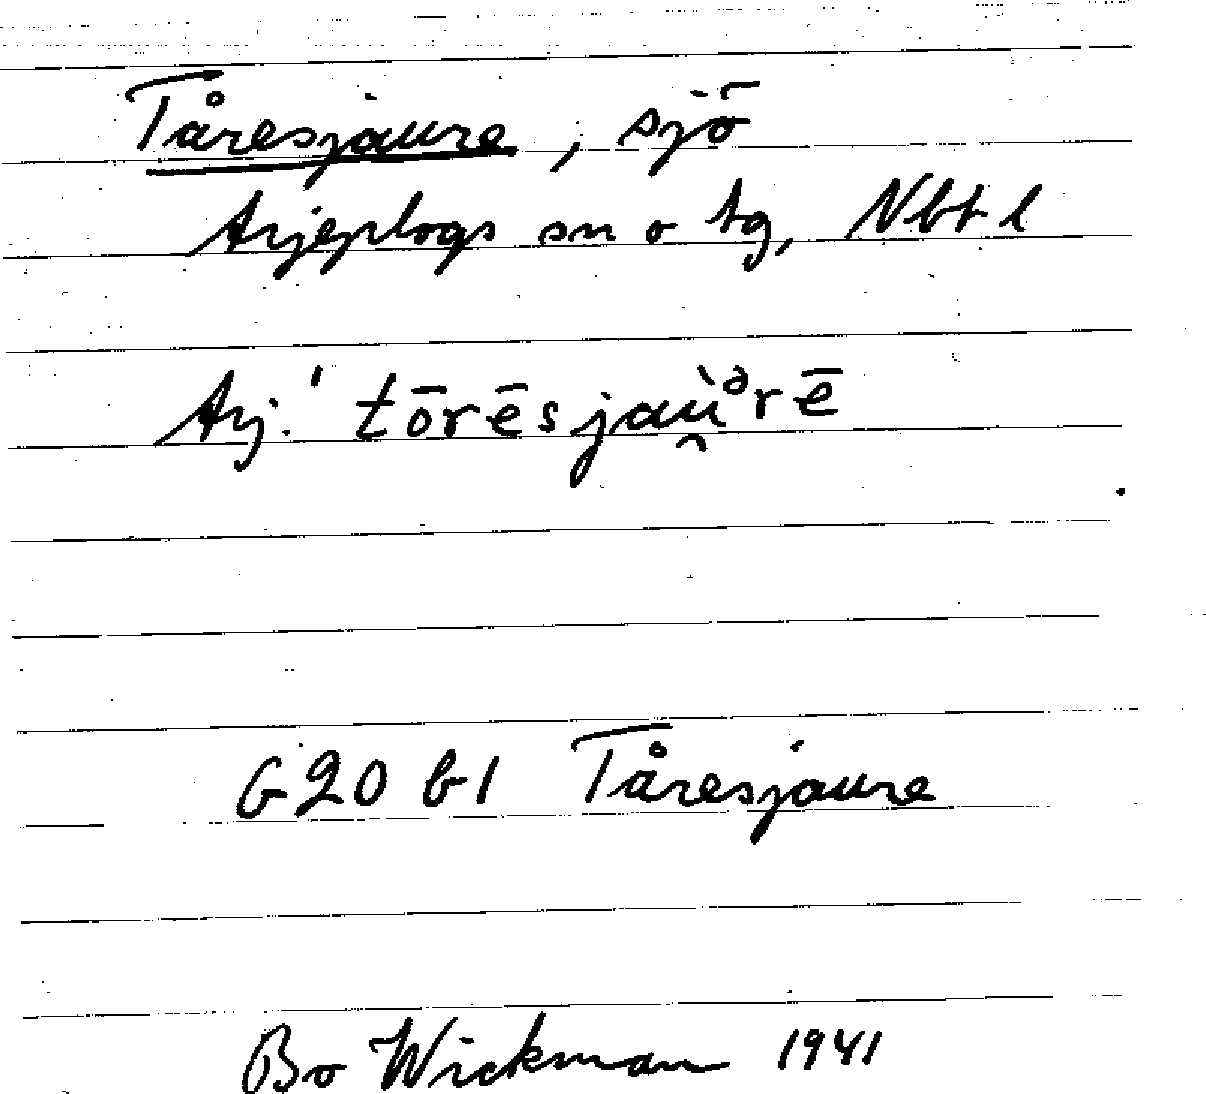 Tåresjaure, sjö
Arjeplogs sn o tg, Nbt l
Arj. ' tōrēsjaù̯ᵊrē
G20 b1 Tåresjaure
Bo Wickman 1941